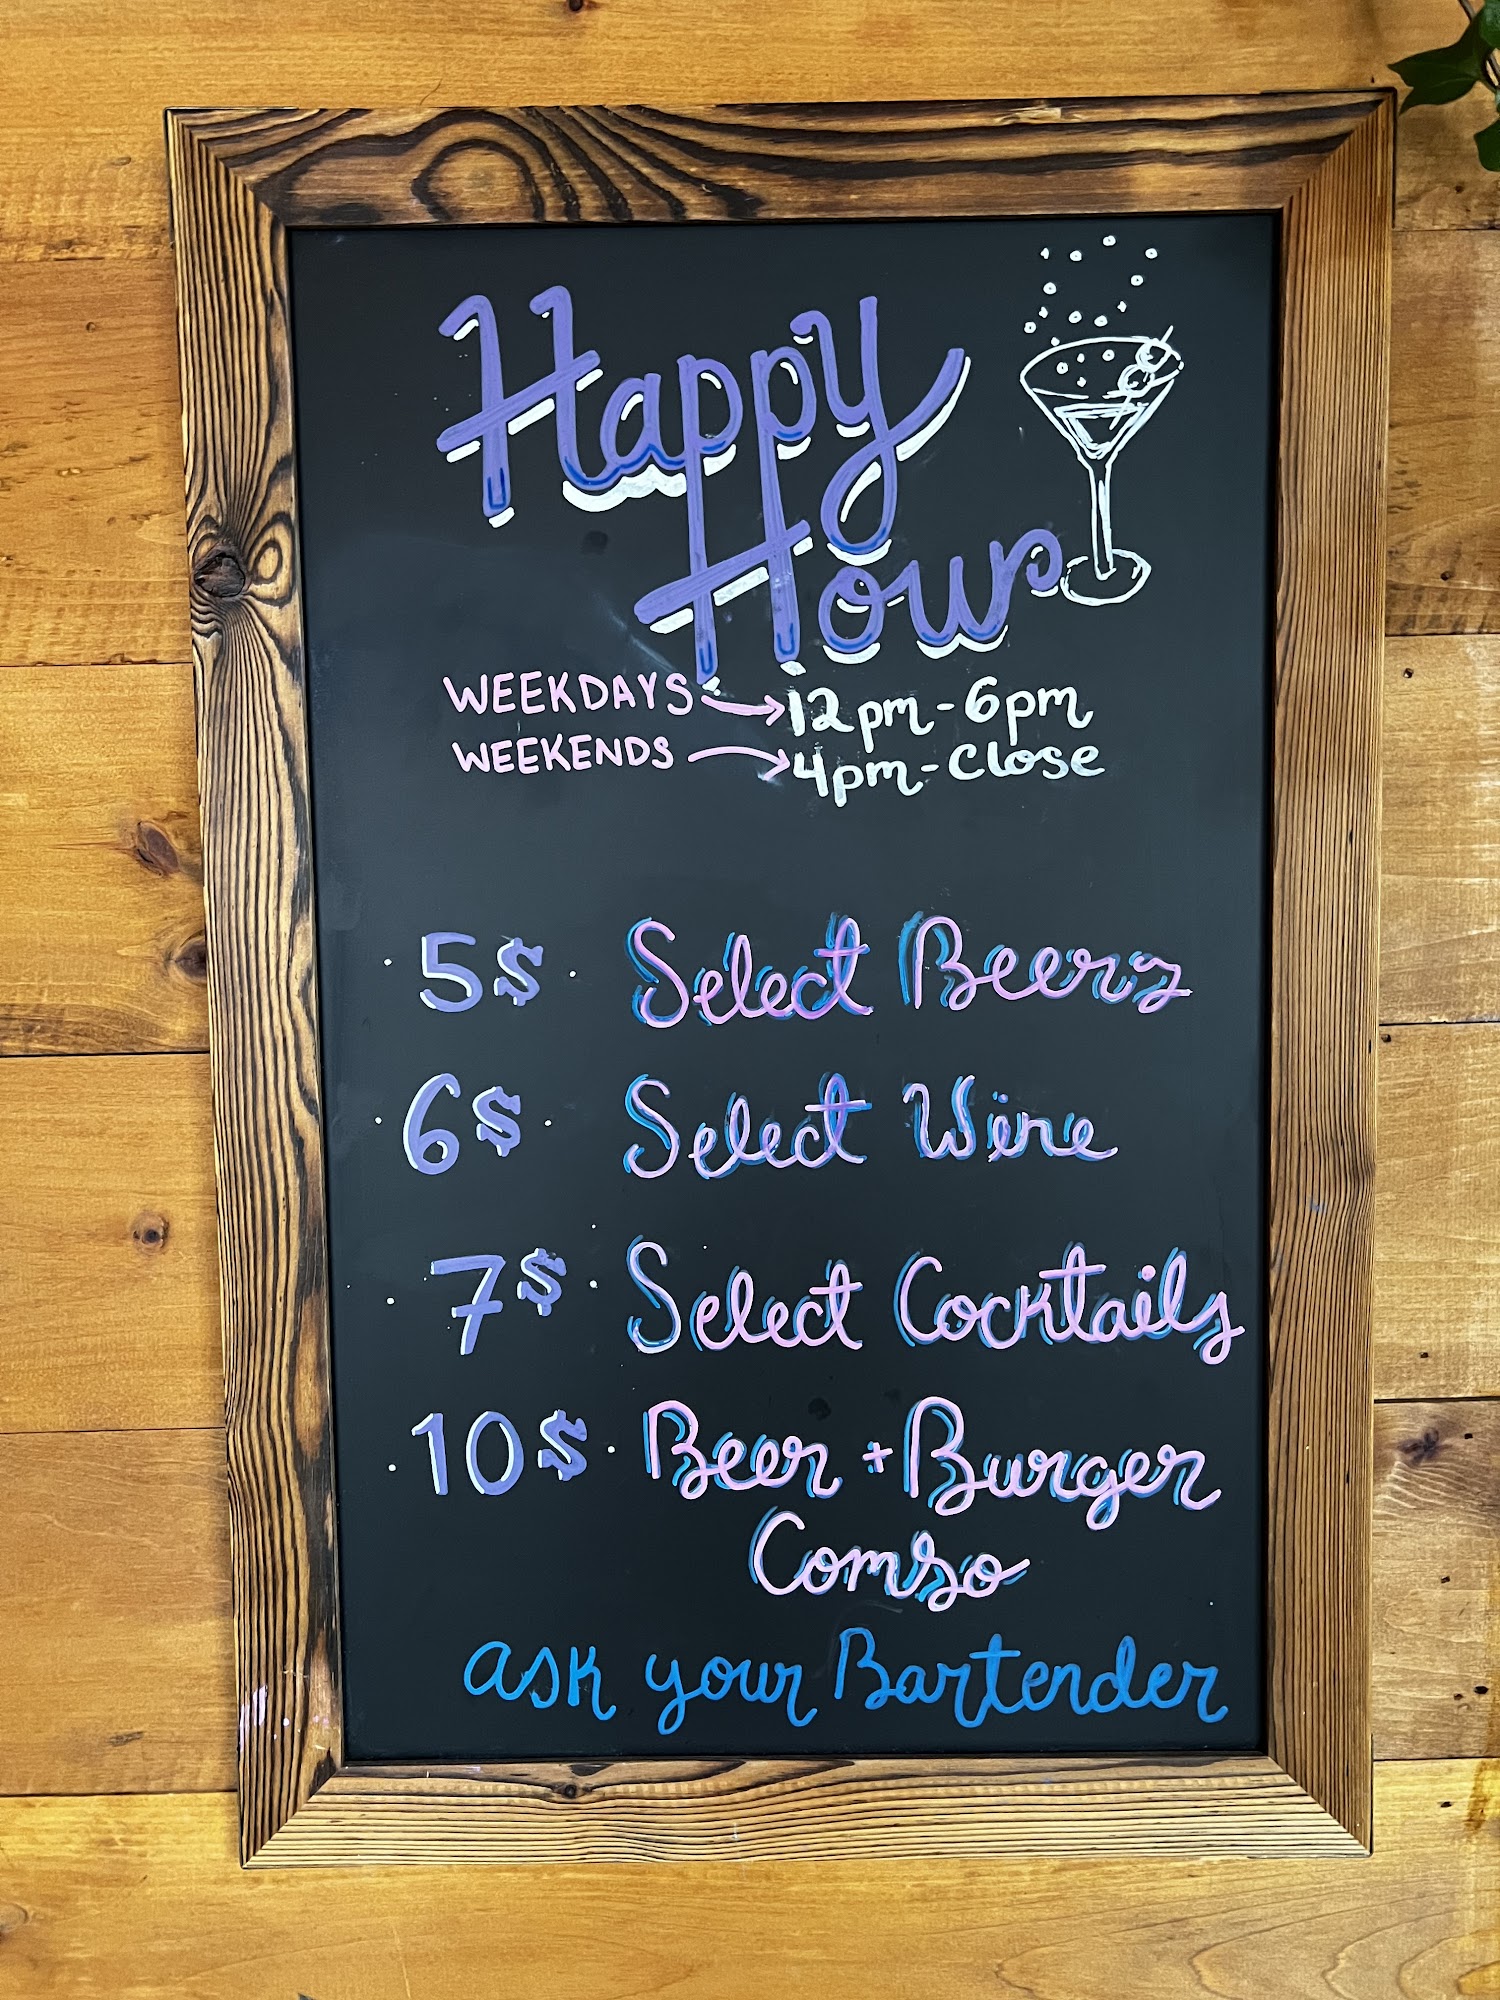 Happy
Hour
WEEKDAYS → 12pm-6pm
WEEKENDS → 4pm-Close
· 5$ · Select Beers
· 6$ · Select Wine
· 7$ · Select Cocktails
· 10$ · Beer + Burger
Combo
ask your Bartender